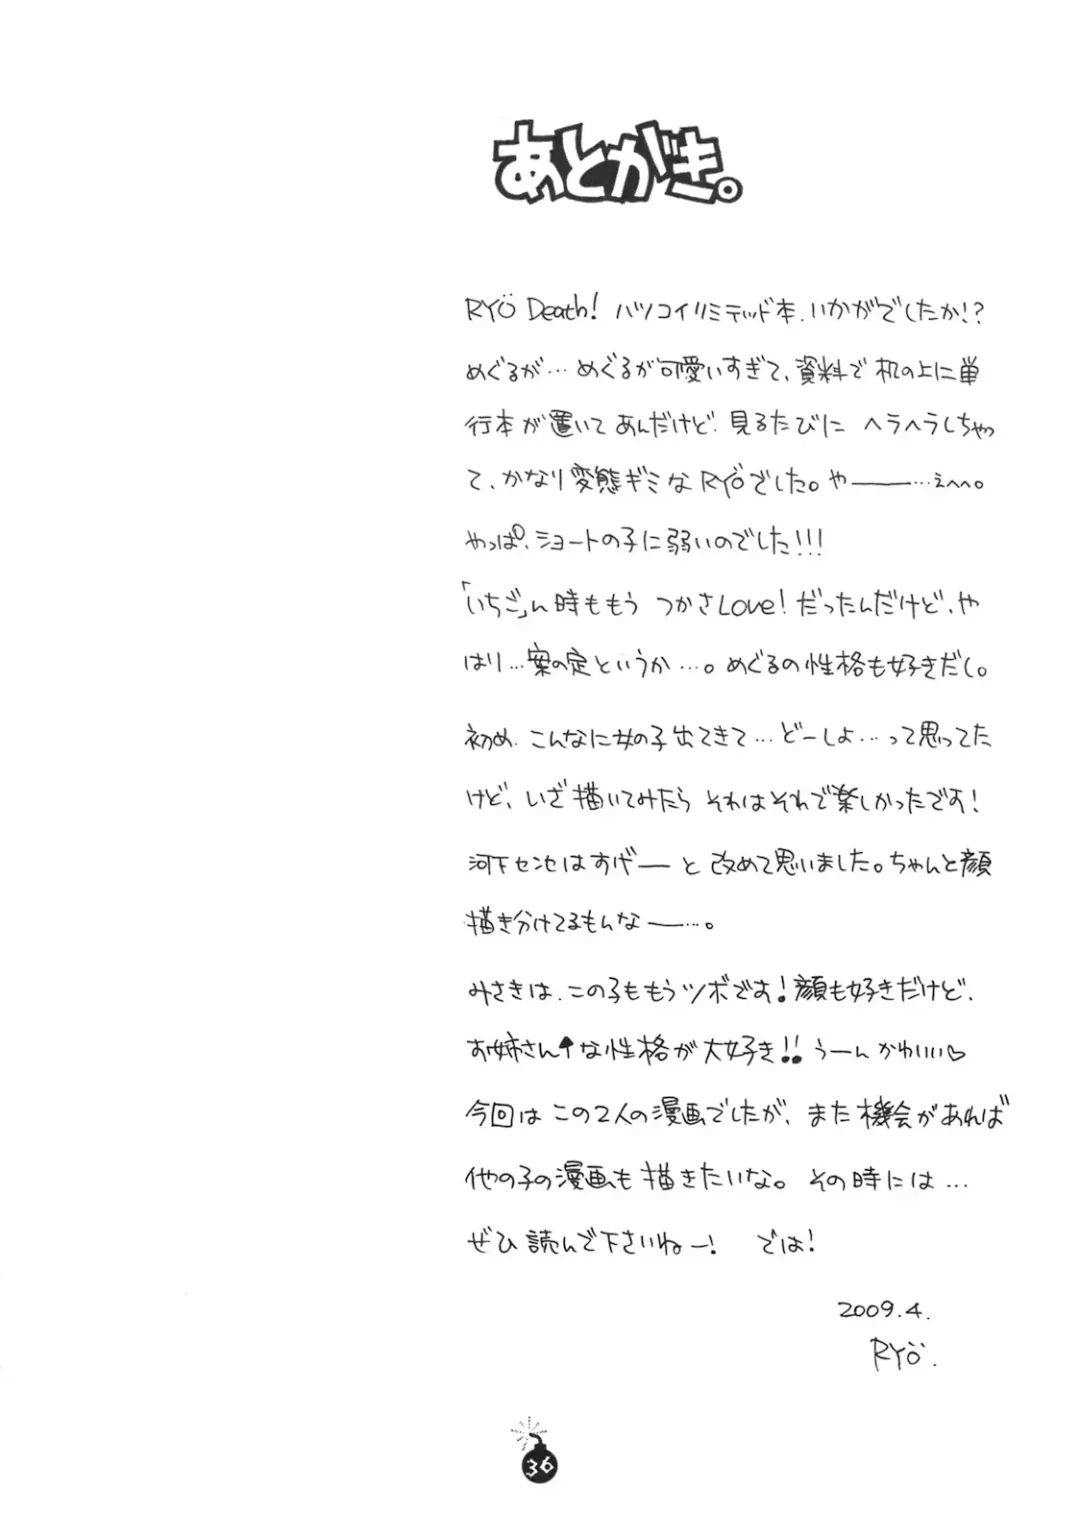 あとがき。
RYÖ Death! ハツコイリミテッド本、いかがでしたか!?
めぐるが…めぐるが可愛いすぎて、資料で机の上に単
行本が置いてあんだけど、見るたびにヘラヘラしちゃっ
て、かなり変態ギミなRYÖでした。や――…えへへ。
やっぱ、ショートの子に弱いのでした!!!
「いちご」ん時ももう つかさLove!だったんだけど、や
はり…案の定というか…。めぐるの性格も好きだし。
初め、こんなに女の子出てきて…どーしよ…って思ってた
けど、いざ描いてみたら それはそれで楽しかったです!
河下センセはすげ―と改めて思いました。ちゃんと顔
描き分けてるもんな――…。
みさきは、この子ももうツボです!顔も好きだけど、
お姉さん↑な性格が大好き!!うーんかわいい♡
今回はこの2人の漫画でしたが、また機会があれば
他の子の漫画も描きたいな。その時には…
ぜひ読んで下さいねー! では!
2009.4.
RYÖ.
36